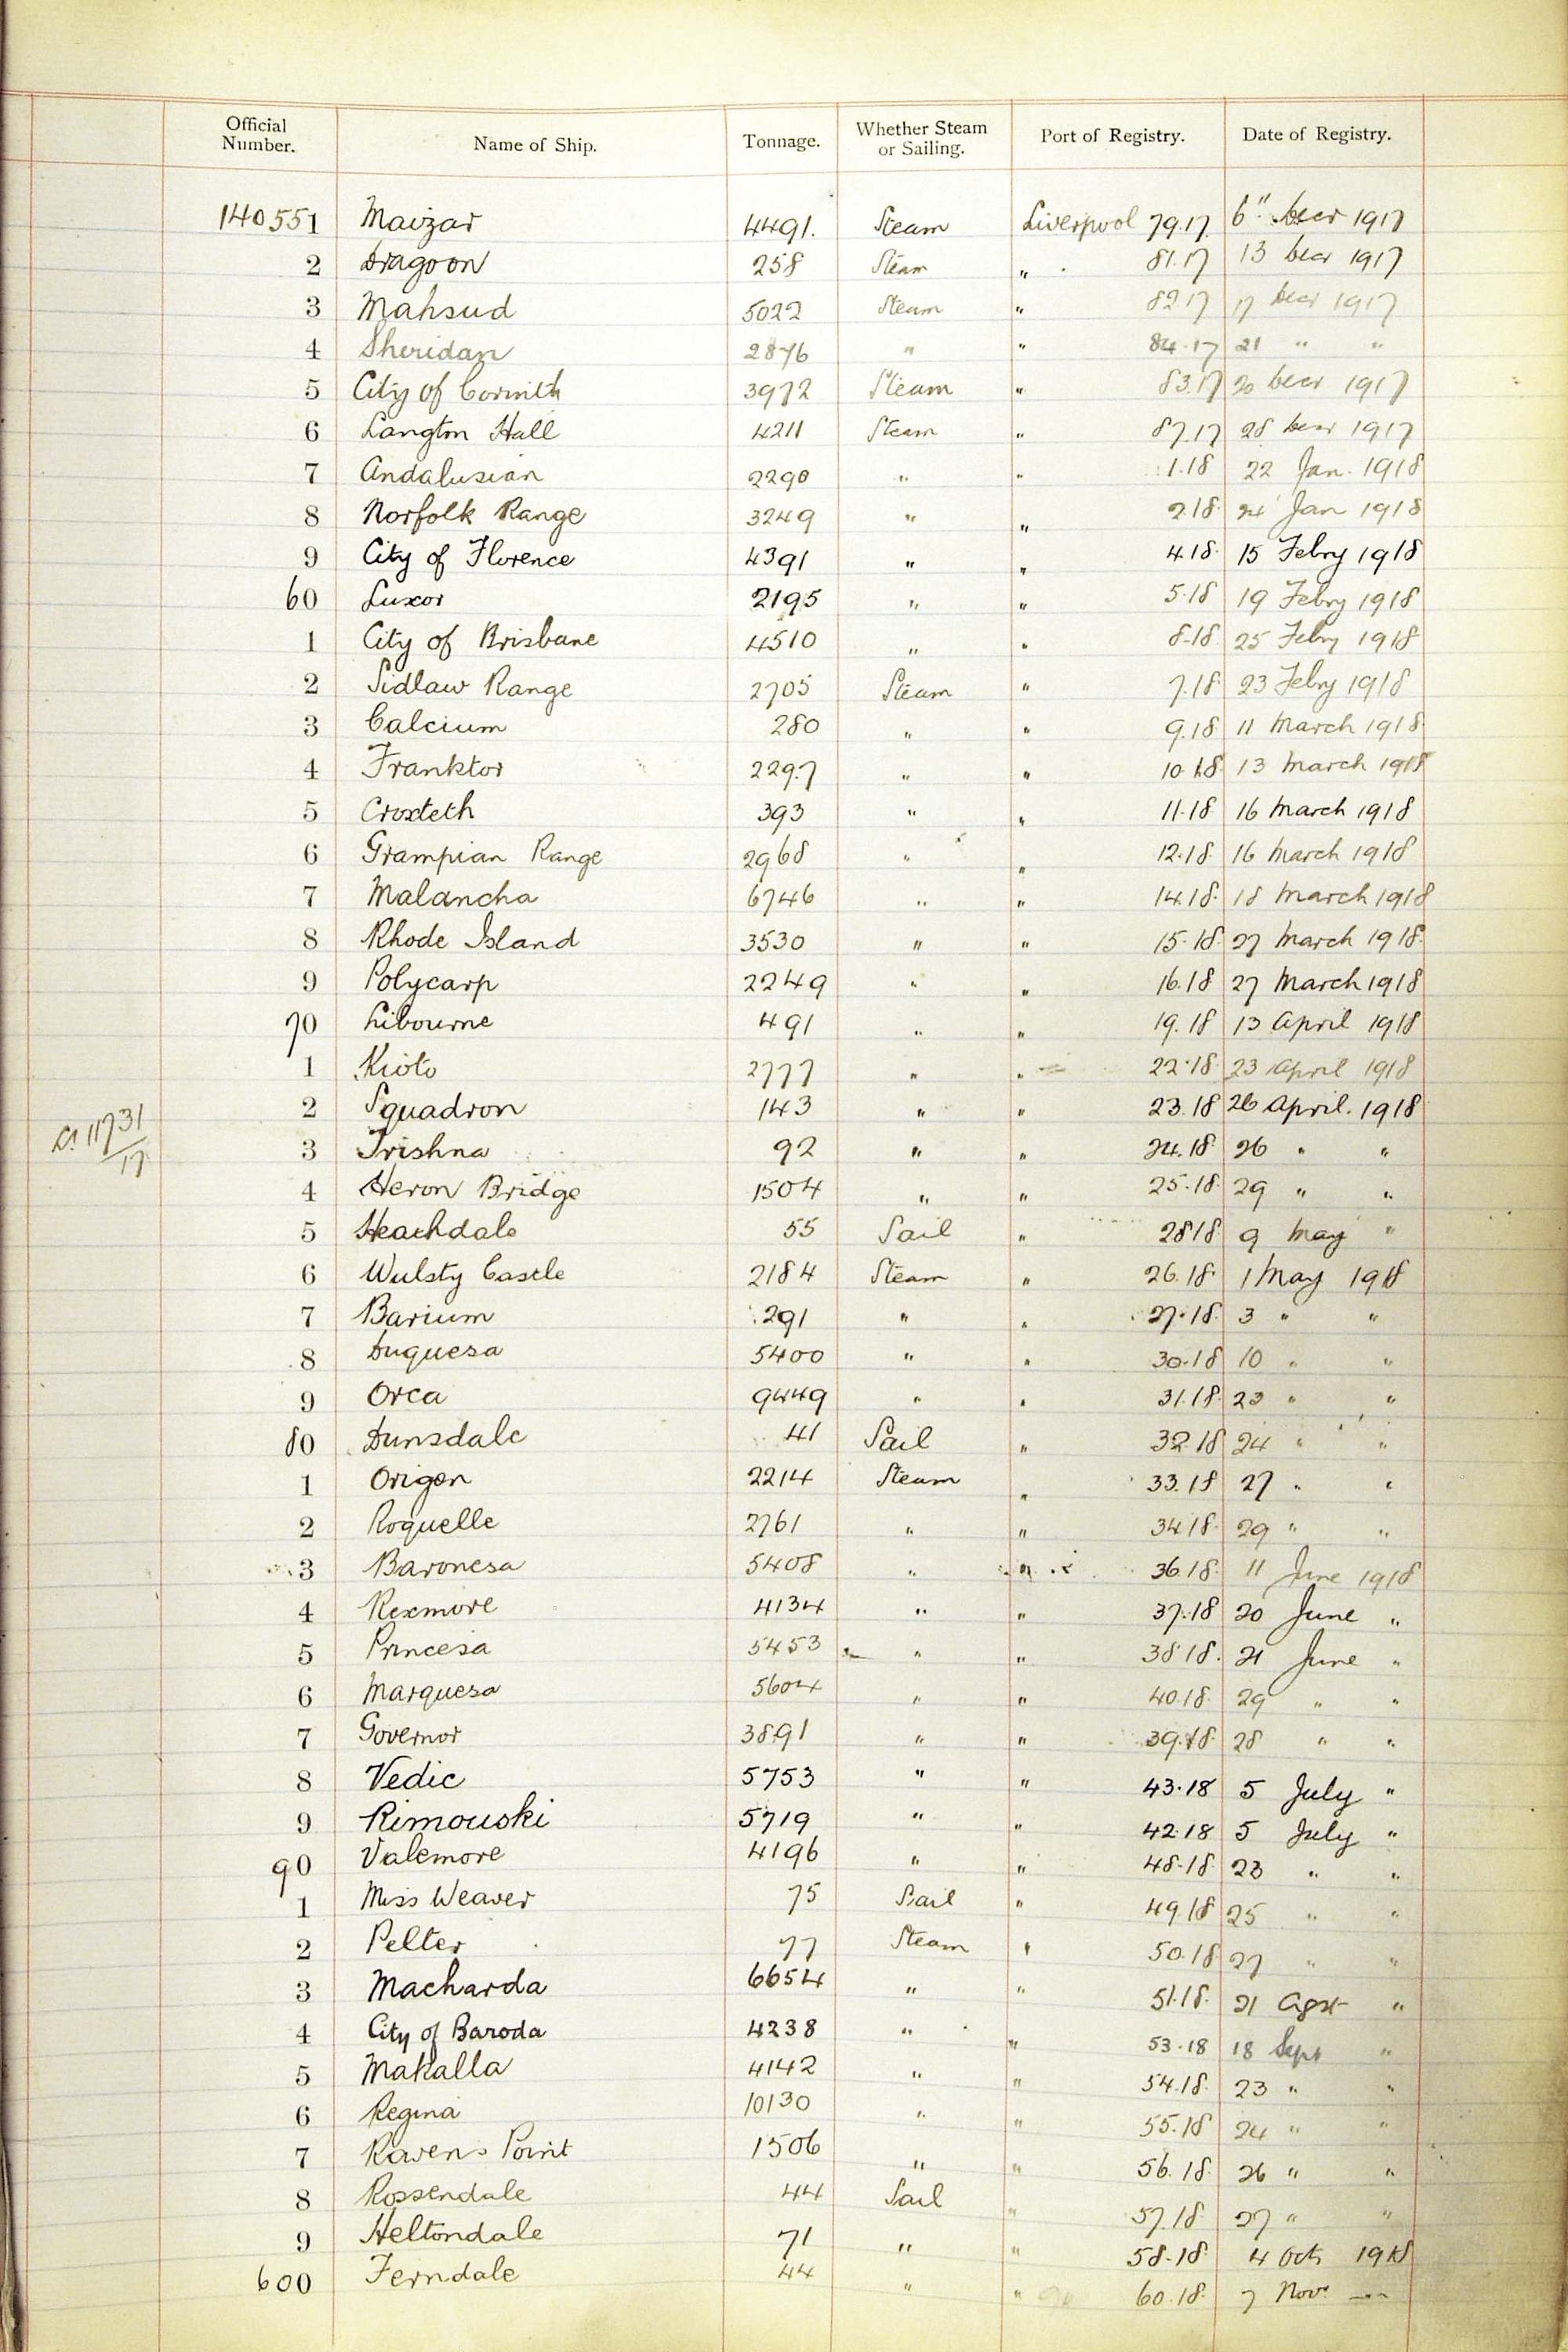 Official Number. Name of Ship. Tonnage. Whether Steam or Sailing. Port of Registry. Date of Registry.
140551 Maizar 4491. Steam Liverpool 79.17. 6" Decr 1917
2 Dragoon 258 Steam " 81.17 13 Decr 1917
3 Mahsud 5022 Steam " 82.17 17 Decr 1917
4 Sheridan 2876 " " 84.17 21 " "
5 City of Corinth 3972 Steam " 83.17 20 Decr 1917
6 Langton Hall 4211 Steam " 87.17 28 Decr 1917
7 Andalusian 2290 " " 1.18 22 Jan. 1918
8 Norfolk Range 3249 " " 2.18. 24 Jan 1918
9 City of Florence 4391 " " 4.18. 15 Febry 1918
60 Luxor 2195 " " 5.18 19 Febry 1918
1 City of Brisbane 4510 " " 8.18. 25 Febry 1918
2 Sidlaw Range 2705 Steam " 7.18 23 Febry 1918
3 Calcium 280 " " 9.18 11 March 1918
4 Franktor 2297 " " 10.18. 13 March 1918
5 Croxteth 393 " " 11.18. 16 March 1918
6 Grampian Range 2968 " " 12.18. 16 March 1918
7 Malancha 6746 " " 14.18. 18 March 1918
8 Rhode Island 3530 " " 15.18. 27 March 1918.
9 Polycarp 2249 " " 16.18 27 March 1918
70 Libourne 491 " " 19.18 13 April 1918
1 Kioto 2777 " " 22.18 23 April 1918
2 Squadron 143 " " 23.18 26 April. 1918
11731/17
3 Trishna 92 " " 24.18. 26 " "
4 Heron Bridge 1504 " " 25.18. 29 " "
5 Heathdale 55 Sail " 28.18. 9 May "
6 Wulsty Castle 2184 Steam " 26.18. 1 May 1918
7 Barium 291 " " 27.18. 3 " "
8 Duquesa 5400 " " 30.18 10 " "
9 Orca 9449 " " 31.18. 23 " "
80 Dunsdale 41 Sail " 32.18 24 " "
1 Origen 2214 Steam " 33.18 27 " "
2 Roquelle 2761 " " 34.18. 29 " "
3 Baronesa 5408 " " 36.18. 11 June 1918
4 Rexmore 4134 " " 37.18 20 June "
5 Princesa 5453 " " 38.18. 21 June "
6 Marquesa 5604 " " 40.18. 29 " "
7 Governor 3891 " " 39.18. 28 " "
8 Vedic 5753 " " 43.18 5 July "
9 Rimouski 5719 " " 42.18 5 July "
90 Valemore 4196 " " 48.18. 23 " "
1 Miss Weaver 75 Sail " 49.18 25 " "
2 Pelter 77 Steam " 50.18 27 " "
3 Macharda 6654 " " 51.18. 21 Agst "
4 City of Baroda 4238 " " 53.18 18 Sept "
5 Makalla 4142 " " 54.18. 23 " "
6 Regina 10130 " " 55.18 24 " "
7 Ravens Point 1506 " " 56.18. 26 " "
8 Rossendale 44 Sail " 57.18. 27 " "
9 Heltondale 71 " " 58.18. 4 Oct 1918
600 Ferndale 44 " " 60.18. 7 Nov.